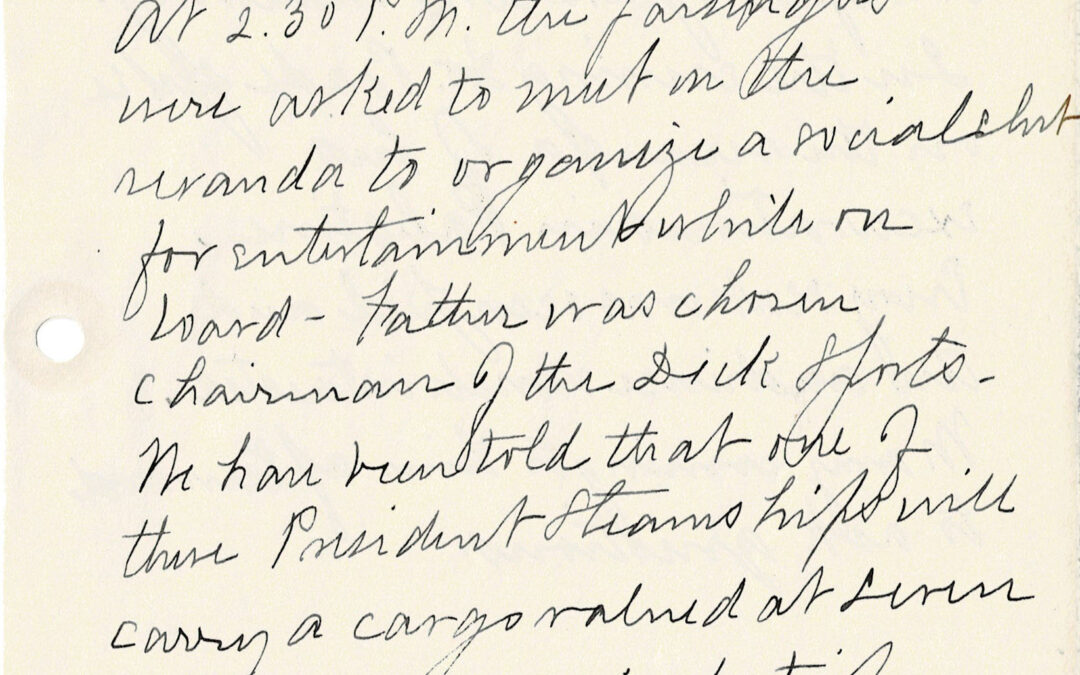 At 2.30 P.M. the passengers
were asked to meet on the
veranda to organize a social
for entertainment while on
board - Father was chosen
chairman of the Deck Sports -
We have been told that one of
these President Steamships will
carry a cargo valued at seven